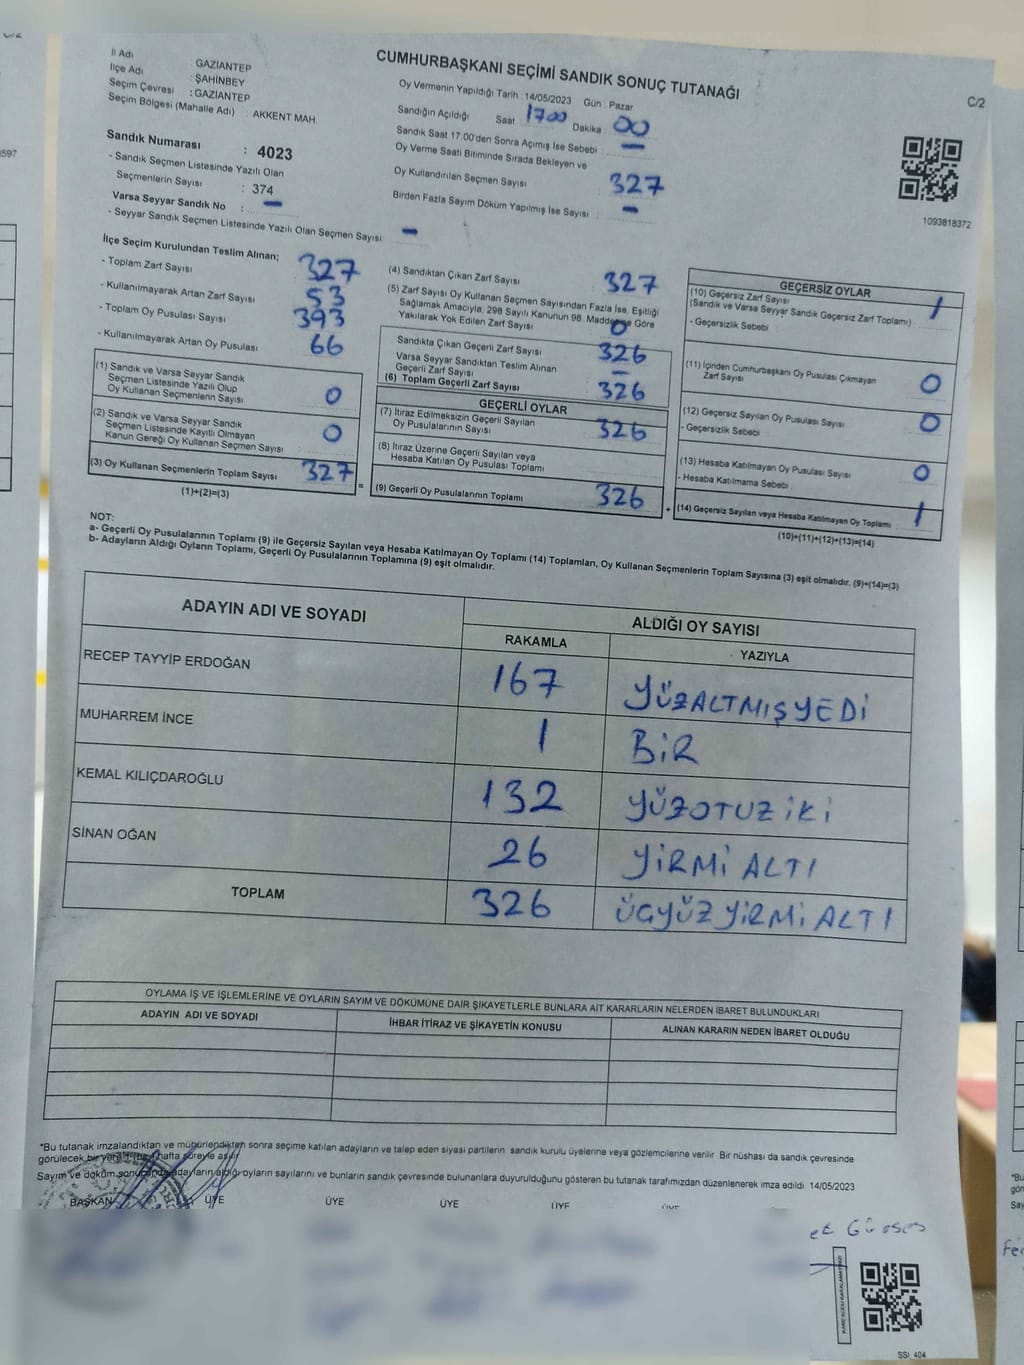 CUMHURBAŞKANI SEÇİMİ SANDIK SONUÇ TUTANAĞI
C/2
İl Adı GAZİANTEP
İlçe Adı ŞAHİNBEY
Seçim Çevresi : GAZİANTEP
Seçim Bölgesi (Mahalle Adı) AKKENT MAH.
Oy Vermenin Yapıldığı Tarih : 14/05/2023 Gün : Pazar
Sandığın Açıldığı Saat 1700 Dakika 00
Sandık Saat 17:00'den Sonra Açımış İse Sebebi : -
Oy Verme Saati Bitiminde Sırada Bekleyen ve
Oy Kullandırılan Seçmen Sayısı 327
Birden Fazla Sayım Döküm Yapılmış İse Sayısı : -
1093818372
Sandık Numarası : 4023
- Sandık Seçmen Listesinde Yazılı Olan
Seçmenlerin Sayısı : 374
Varsa Seyyar Sandık No : -
- Seyyar Sandık Seçmen Listesinde Yazılı Olan Seçmen Sayısı: -
İlçe Seçim Kurulundan Teslim Alınan;
- Toplam Zarf Sayısı 327
- Kullanılmayarak Artan Zarf Sayısı 53
- Toplam Oy Pusulası Sayısı 393
- Kullanılmayarak Artan Oy Pusulası 66
(1) Sandık ve Varsa Seyyar Sandık
Seçmen Listesinde Yazılı Olup
Oy Kullanan Seçmenlerin Sayısı 0
(2) Sandık ve Varsa Seyyar Sandık
Seçmen Listesinde Kayıtlı Olmayan
Kanun Gereği Oy Kullanan Seçmen Sayısı 0
(3) Oy Kullanan Seçmenlerin Toplam Sayısı 327
(1)+(2)=(3)
=
(4) Sandıktan Çıkan Zarf Sayısı 327
(5) Zarf Sayısı Oy Kullanan Seçmen Sayısından Fazla İse, Eşitliği
Sağlamak Amacıyla, 298 Sayılı Kanunun 98. Maddesine Göre
Yakılarak Yok Edilen Zarf Sayısı 0
Sandıkta Çıkan Geçerli Zarf Sayısı 326
Varsa Seyyar Sandıktan Teslim Alınan
Geçerli Zarf Sayısı -
(6) Toplam Geçerli Zarf Sayısı 326
GEÇERLİ OYLAR
(7) İtiraz Edilmeksizin Geçerli Sayılan
Oy Pusulalarının Sayısı 326
(8) İtiraz Üzerine Geçerli Sayılan veya
Hesaba Katılan Oy Pusulası Toplamı
(9) Geçerli Oy Pusulalarının Toplamı 326
+
GEÇERSİZ OYLAR
(10) Geçersiz Zarf Sayısı
(Sandık ve Varsa Seyyar Sandık Geçersiz Zarf Toplamı) 1
- Geçersizlik Sebebi
(11) İçinden Cumhurbaşkanı Oy Pusulası Çıkmayan
Zarf Sayısı 0
(12) Geçersiz Sayılan Oy Pusulası Sayısı 0
- Geçersizlik Sebebi
(13) Hesaba Katılmayan Oy Pusulası Sayısı 0
- Hesaba Katılmama Sebebi
(14) Geçersiz Sayılan veya Hesaba Katılmayan Oy Toplamı 1
(10)+(11)+(12)+(13)=(14)
NOT:
a- Geçerli Oy Pusulalarının Toplamı (9) ile Geçersiz Sayılan veya Hesaba Katılmayan Oy Toplamı (14) Toplamları, Oy Kullanan Seçmenlerin Toplam Sayısına (3) eşit olmalıdır. (9)+(14)=(3)
b- Adayların Aldığı Oyların Toplamı, Geçerli Oy Pusulalarının Toplamına (9) eşit olmalıdır.
ADAYIN ADI VE SOYADI ALDIĞI OY SAYISI
RAKAMLA YAZIYLA
RECEP TAYYİP ERDOĞAN 167 YÜZALTMIŞYEDİ
MUHARREM İNCE 1 BİR
KEMAL KILIÇDAROĞLU 132 YÜZOTUZ İKİ
SİNAN OĞAN 26 YİRMİ ALTI
TOPLAM 326 ÜÇYÜZ YİRMİ ALTI
OYLAMA İŞ VE İŞLEMLERİNE VE OYLARIN SAYIM VE DÖKÜMÜNE DAİR ŞİKAYETLERLE BUNLARA AİT KARARLARIN NELERDEN İBARET BULUNDUKLARI
ADAYIN ADI VE SOYADI İHBAR İTİRAZ VE ŞİKAYETİN KONUSU ALINAN KARARIN NEDEN İBARET OLDUĞU
*Bu tutanak imzalandıktan ve mühürlendikten sonra seçime katılan adayların ve talep eden siyasi partilerin sandık kurulu üyelerine veya gözlemcilerine verilir. Bir nüshası da sandık çevresinde
görülecek bir yere 1 hafta süreyle asılır.
Sayım ve döküm sonucunda adayların aldığı oyların sayılarını ve bunların sandık çevresinde bulunanlara duyurulduğunu gösteren bu tutanak tarafımızdan düzenlenerek imza edildi. 14/05/2023
BAŞKAN ÜYE ÜYE ÜYE ÜYE ÜYE
SSI_404